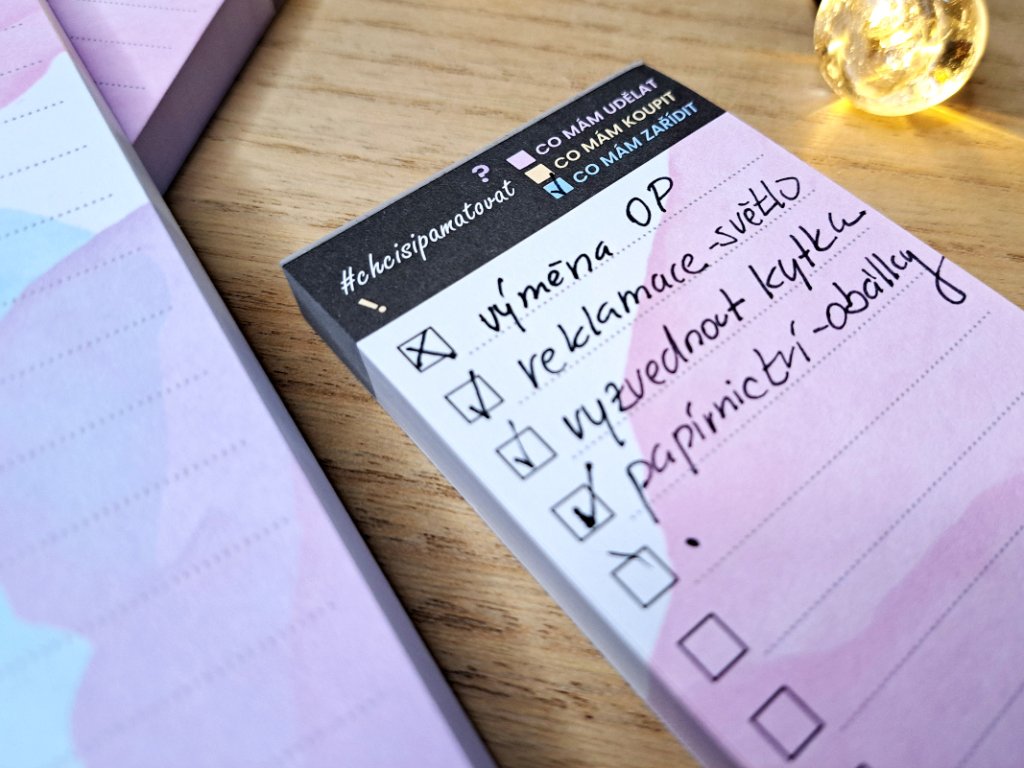 #chcisipamatovat
CO MÁM UDĚLAT
CO MÁM KOUPIT
CO MÁM ZAŘÍDIT
výměna OP
reklamace - světlo
vyzvednout kytku
papírnictví - obálky